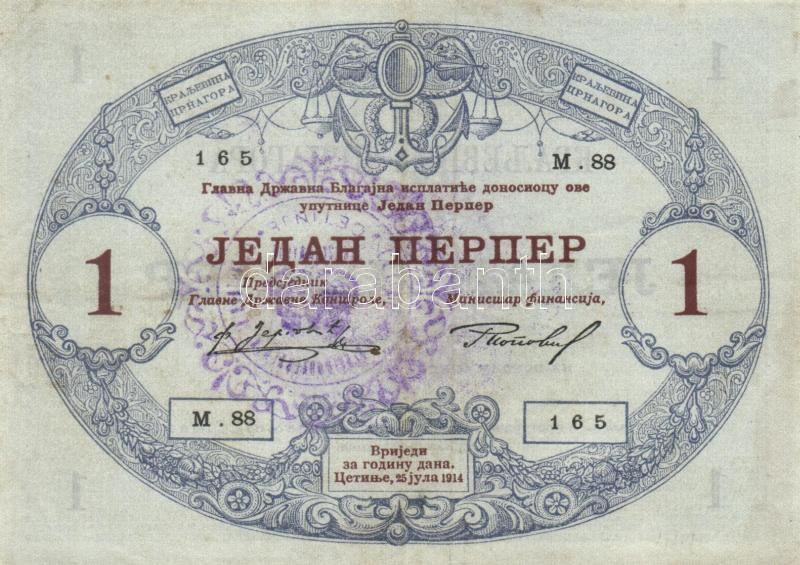 1
1
КРАЉЕВИНА
ЦРНАГОРА
КРАЉЕВИНА
ЦРНАГОРА
165
М.88
Главна Државна Благајна исплатиће доносиоцу ове
упутнице Један Перпер
ЈЕДАН ПЕРПЕР
1
1
Предсједник
Главне Државне Контроле,
Министар финансија,
darabanth
М.88
165
Вриједи
за годину дана.
Цетиње, 25 јула 1914
1
1